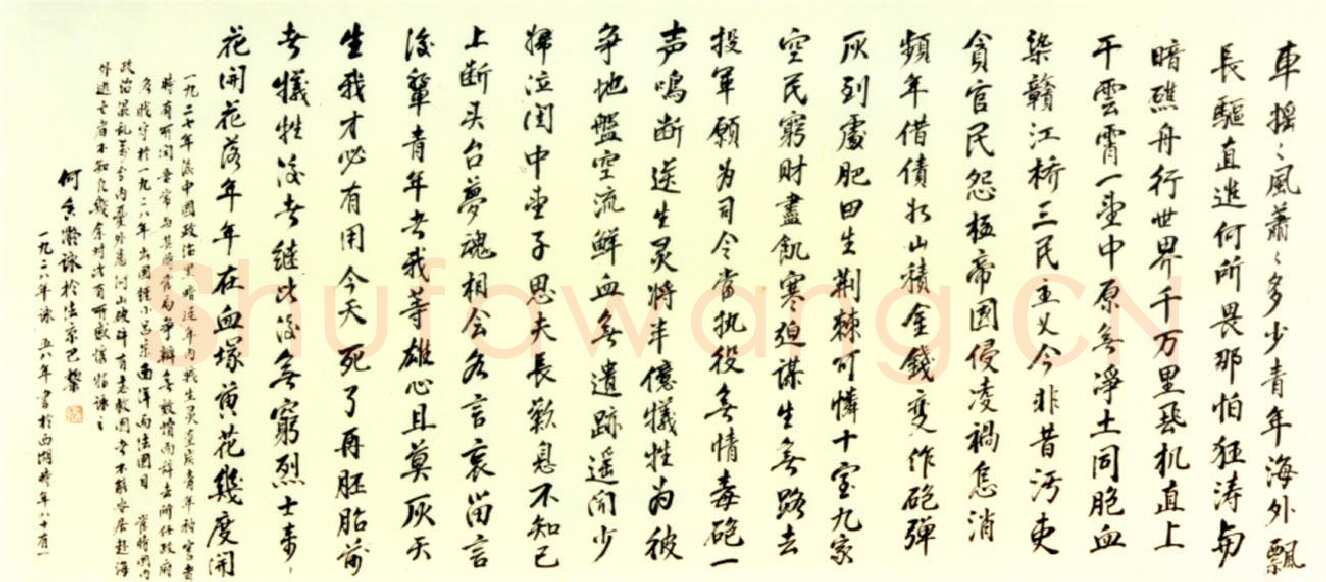 車摇々風蕭々多少青年海外飄
長驅直進何所畏那怕狂涛与
暗礁舟行世界千万里飛机直上
干雲霄一望中原無淨土同胞血
染贛江桥三民主义今非昔污吏
貪官民怨極帝國侵凌禍怎消
頻年借債如山積金錢变作砲彈
灰列處肥田生荆棘可憐十室九家
空民窮財盡飢寒迫謀生無路去
投軍願为司令當执役無情毒砲一
声鳴断送生灵将半億犠牲为彼
争地盤空流鮮血無遺跡遥闻少
婦泣闺中望子思夫長歎息不知已
上断头台夢魂相会各言哀留言
後輩青年者我等雄心且莫灰天
生我才必有用今天死了再胚胎前
者犠牲後者继此後無窮烈士来
花開花落年年在血塚黄花幾度開
一九二七年後中國政治黑暗
時有所闻
於一九二八年出國
政治
外
何香凝詠於法京巴黎
一九二八年詠 五八年書於西湖時年八十有一
Shufawang.CN